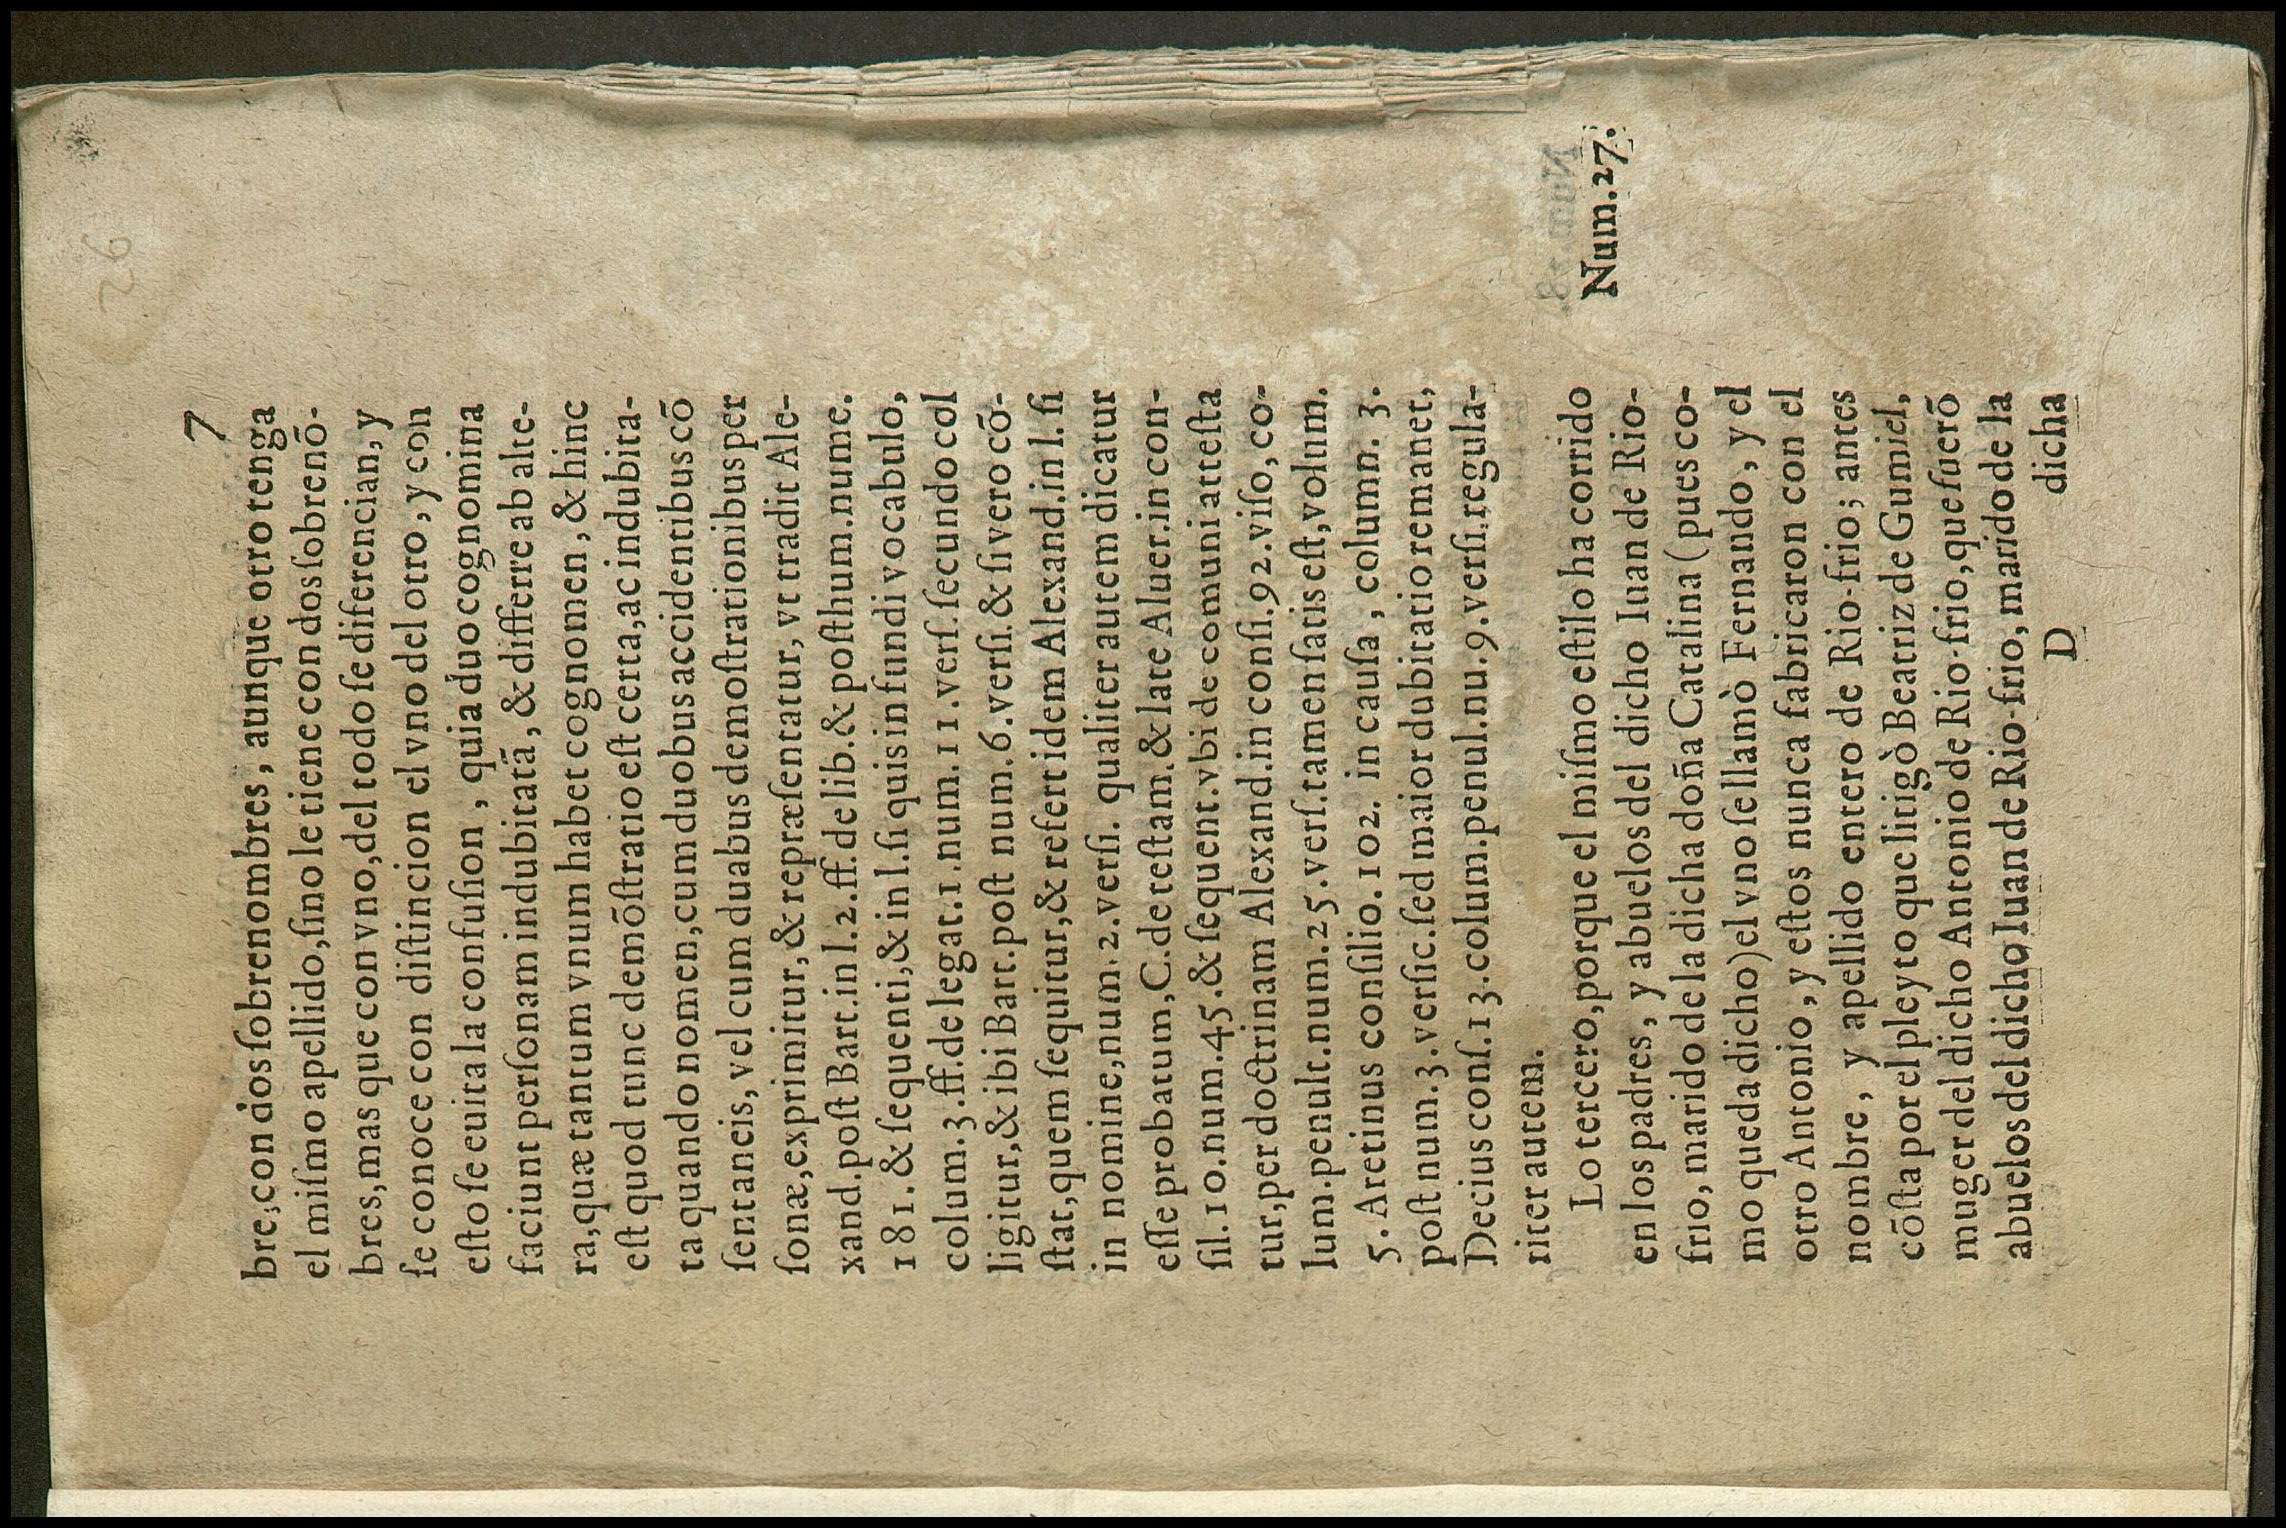 92
7
bre, con dos ſobrenombres, aunque otro tenga
el miſmo apellido, ſino le tiene con dos ſobrenõ-
bres, mas que con vno, del todo ſe diferencian, y
ſe conoce con diſtincion el vno del otro, y con
eſto ſe euita la confuſion, quia duo cognomina
faciunt perſonam indubitatã, & differre ab alte-
ra, quæ tantum vnum habet cognomen, & hinc
eſt quod tunc demõſtratio eſt certa, ac indubita-
ta quando nomen, cum duobus accidentibus cõ
ſentaneis, vel cum duabus demoſtrationibus per
ſonæ, exprimitur, & repræſentatur, vt tradit Ale-
xand. poſt Bart. in l. 2. ff. de lib. & poſthum. nume.
181. & ſequenti, & in l. ſi quis in fundi vocabulo,
colum. 3. ff. de legat. 1. num. 11. verſ. ſecundo col
ligitur, & ibi Bart. poſt num. 6. verſi. & ſi vero cõ-
ſtat, quem ſequitur, & refert idem Alexand. in l. ſi
in nomine, num. 2. verſi. qualiter autem dicatur
eſſe probatum, C. de teſtam. & late Aluer. in con-
ſil. 10. num. 45. & ſequent. vbi de comuni atteſta
tur, per doctrinam Alexand. in conſi. 92. viſo, co-
lum. penult. num. 25. verſ. tamen ſatis eſt, volum.
5. Aretinus conſilio. 102. in cauſa, column. 3.
poſt num. 3. verſic. ſed maior dubitatio remanet,
Decius conſ. 13. colum. penul. nu. 9. verſi. regula-
riter autem.
Lo tercero, porque el miſmo eſtilo ha corrido
Num. 27.
en los padres, y abuelos del dicho Iuan de Rio-
frio, marido de la dicha doña Catalina (pues co-
mo queda dicho) el vno ſe llamò Fernando, y el
otro Antonio, y eſtos nunca fabricaron con el
nombre, y apellido entero de Rio-frio; antes
cõſta por el pleyto que litigò Beatriz de Gumiel,
muger del dicho Antonio de Rio-frio, que fuerõ
abuelos del dicho Iuan de Rio-frio, marido de la
D dicha